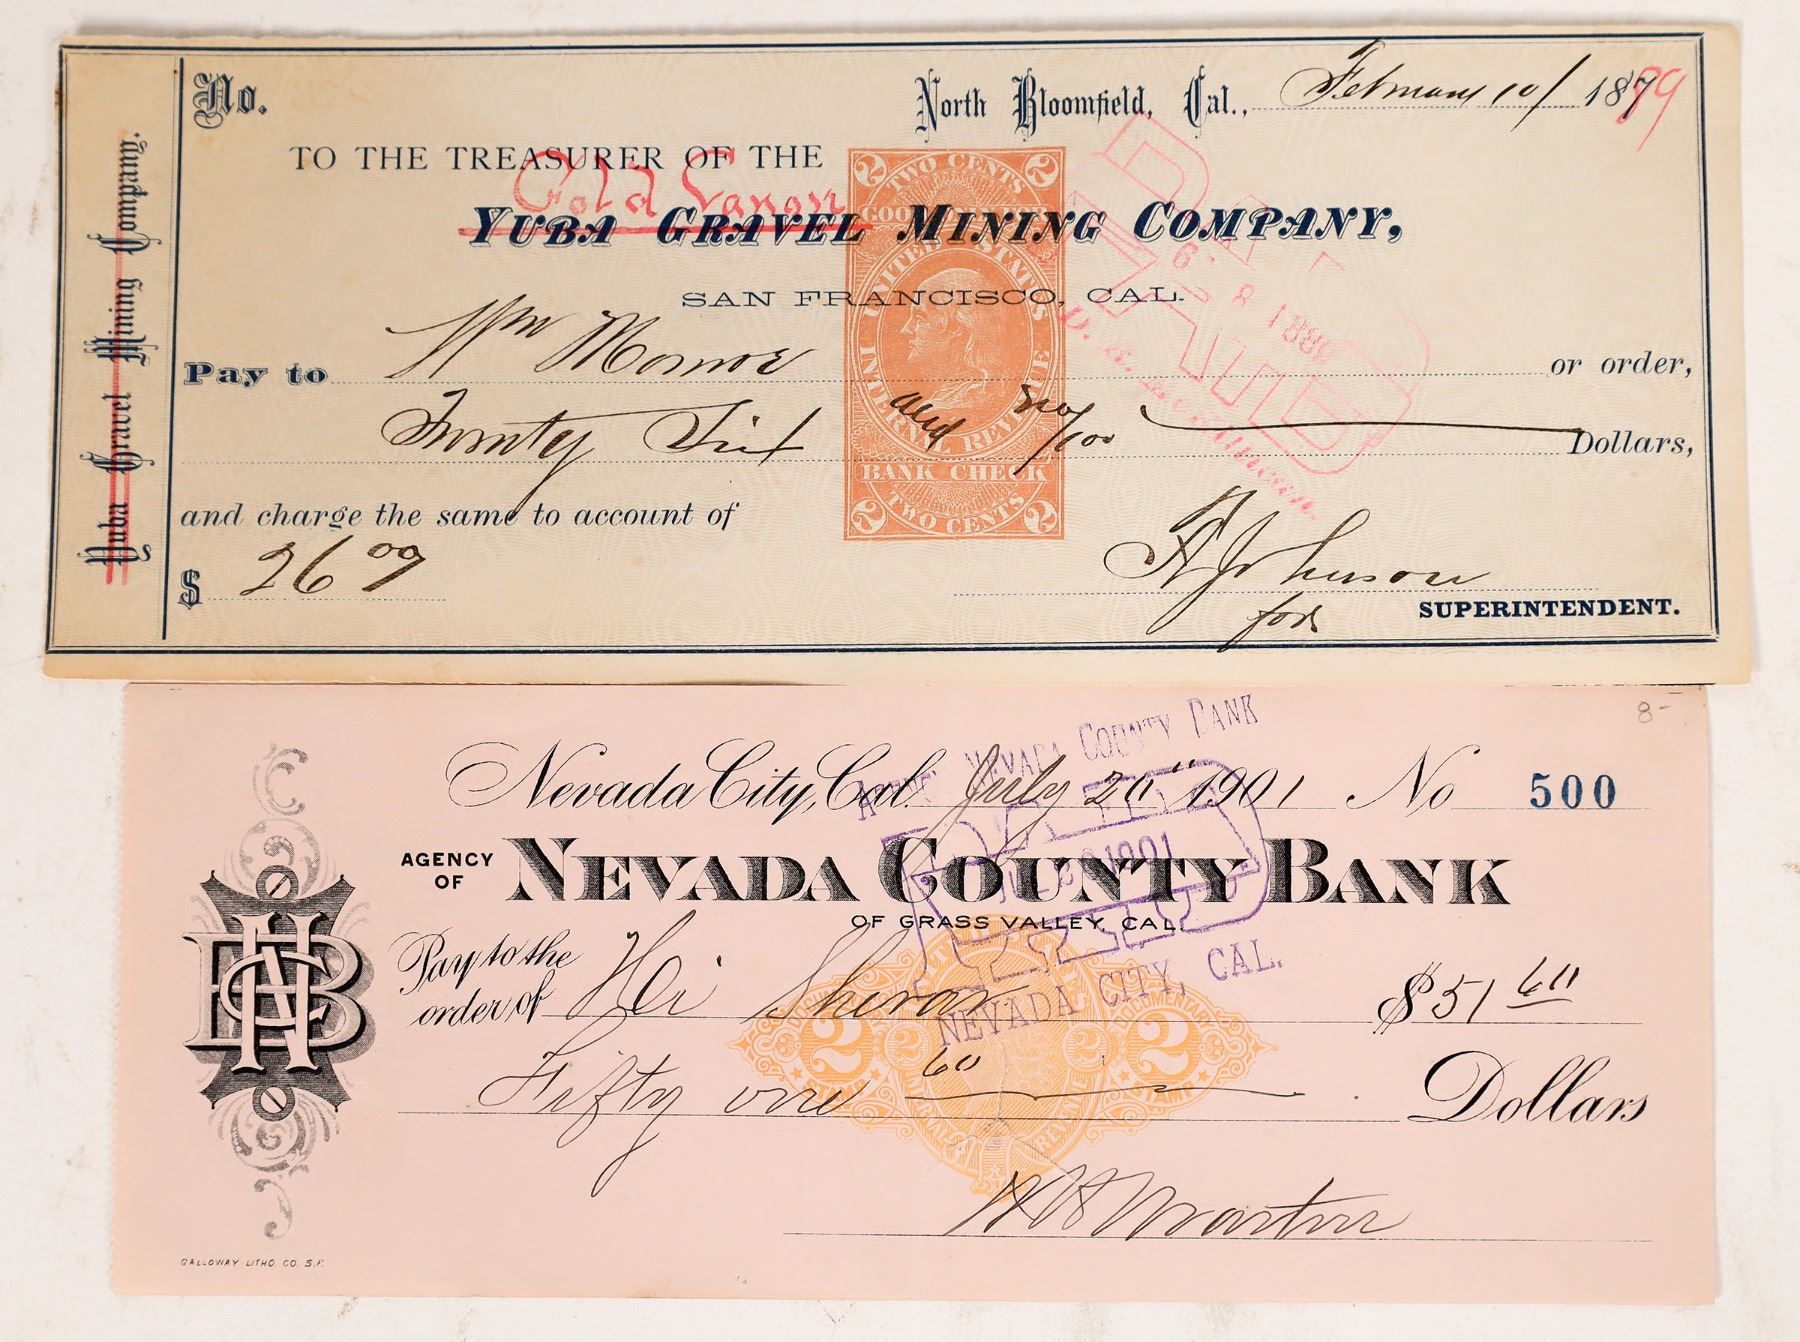 No.
North Bloomfield, Cal., February 10/ 1879
TO THE TREASURER OF THE
Gold Canon
YUBA GRAVEL MINING COMPANY,
SAN FRANCISCO, CAL.
Pay to Wm Monroe or order,
Twenty Six and no/100 Dollars,
and charge the same to account of
$ 26 00
for SUPERINTENDENT.
Yuba Gravel Mining Company.
2 TWO CENTS 2
UNITED STATES
INTERNAL REVENUE
BANK CHECK
2 TWO CENTS 2
PAID
8-
Nevada City, Cal. July 20" 1901 No 500
AGENCY OF NEVADA COUNTY BANK
OF GRASS VALLEY, CAL.
Pay to the order of Hi Shivar $ 51 60
Fifty one 60 Dollars
W H Martin
AGENCY NEVADA COUNTY BANK
PAID
1901
NEVADA CITY, CAL.
2 2
GALLOWAY LITHO. CO. S.F.